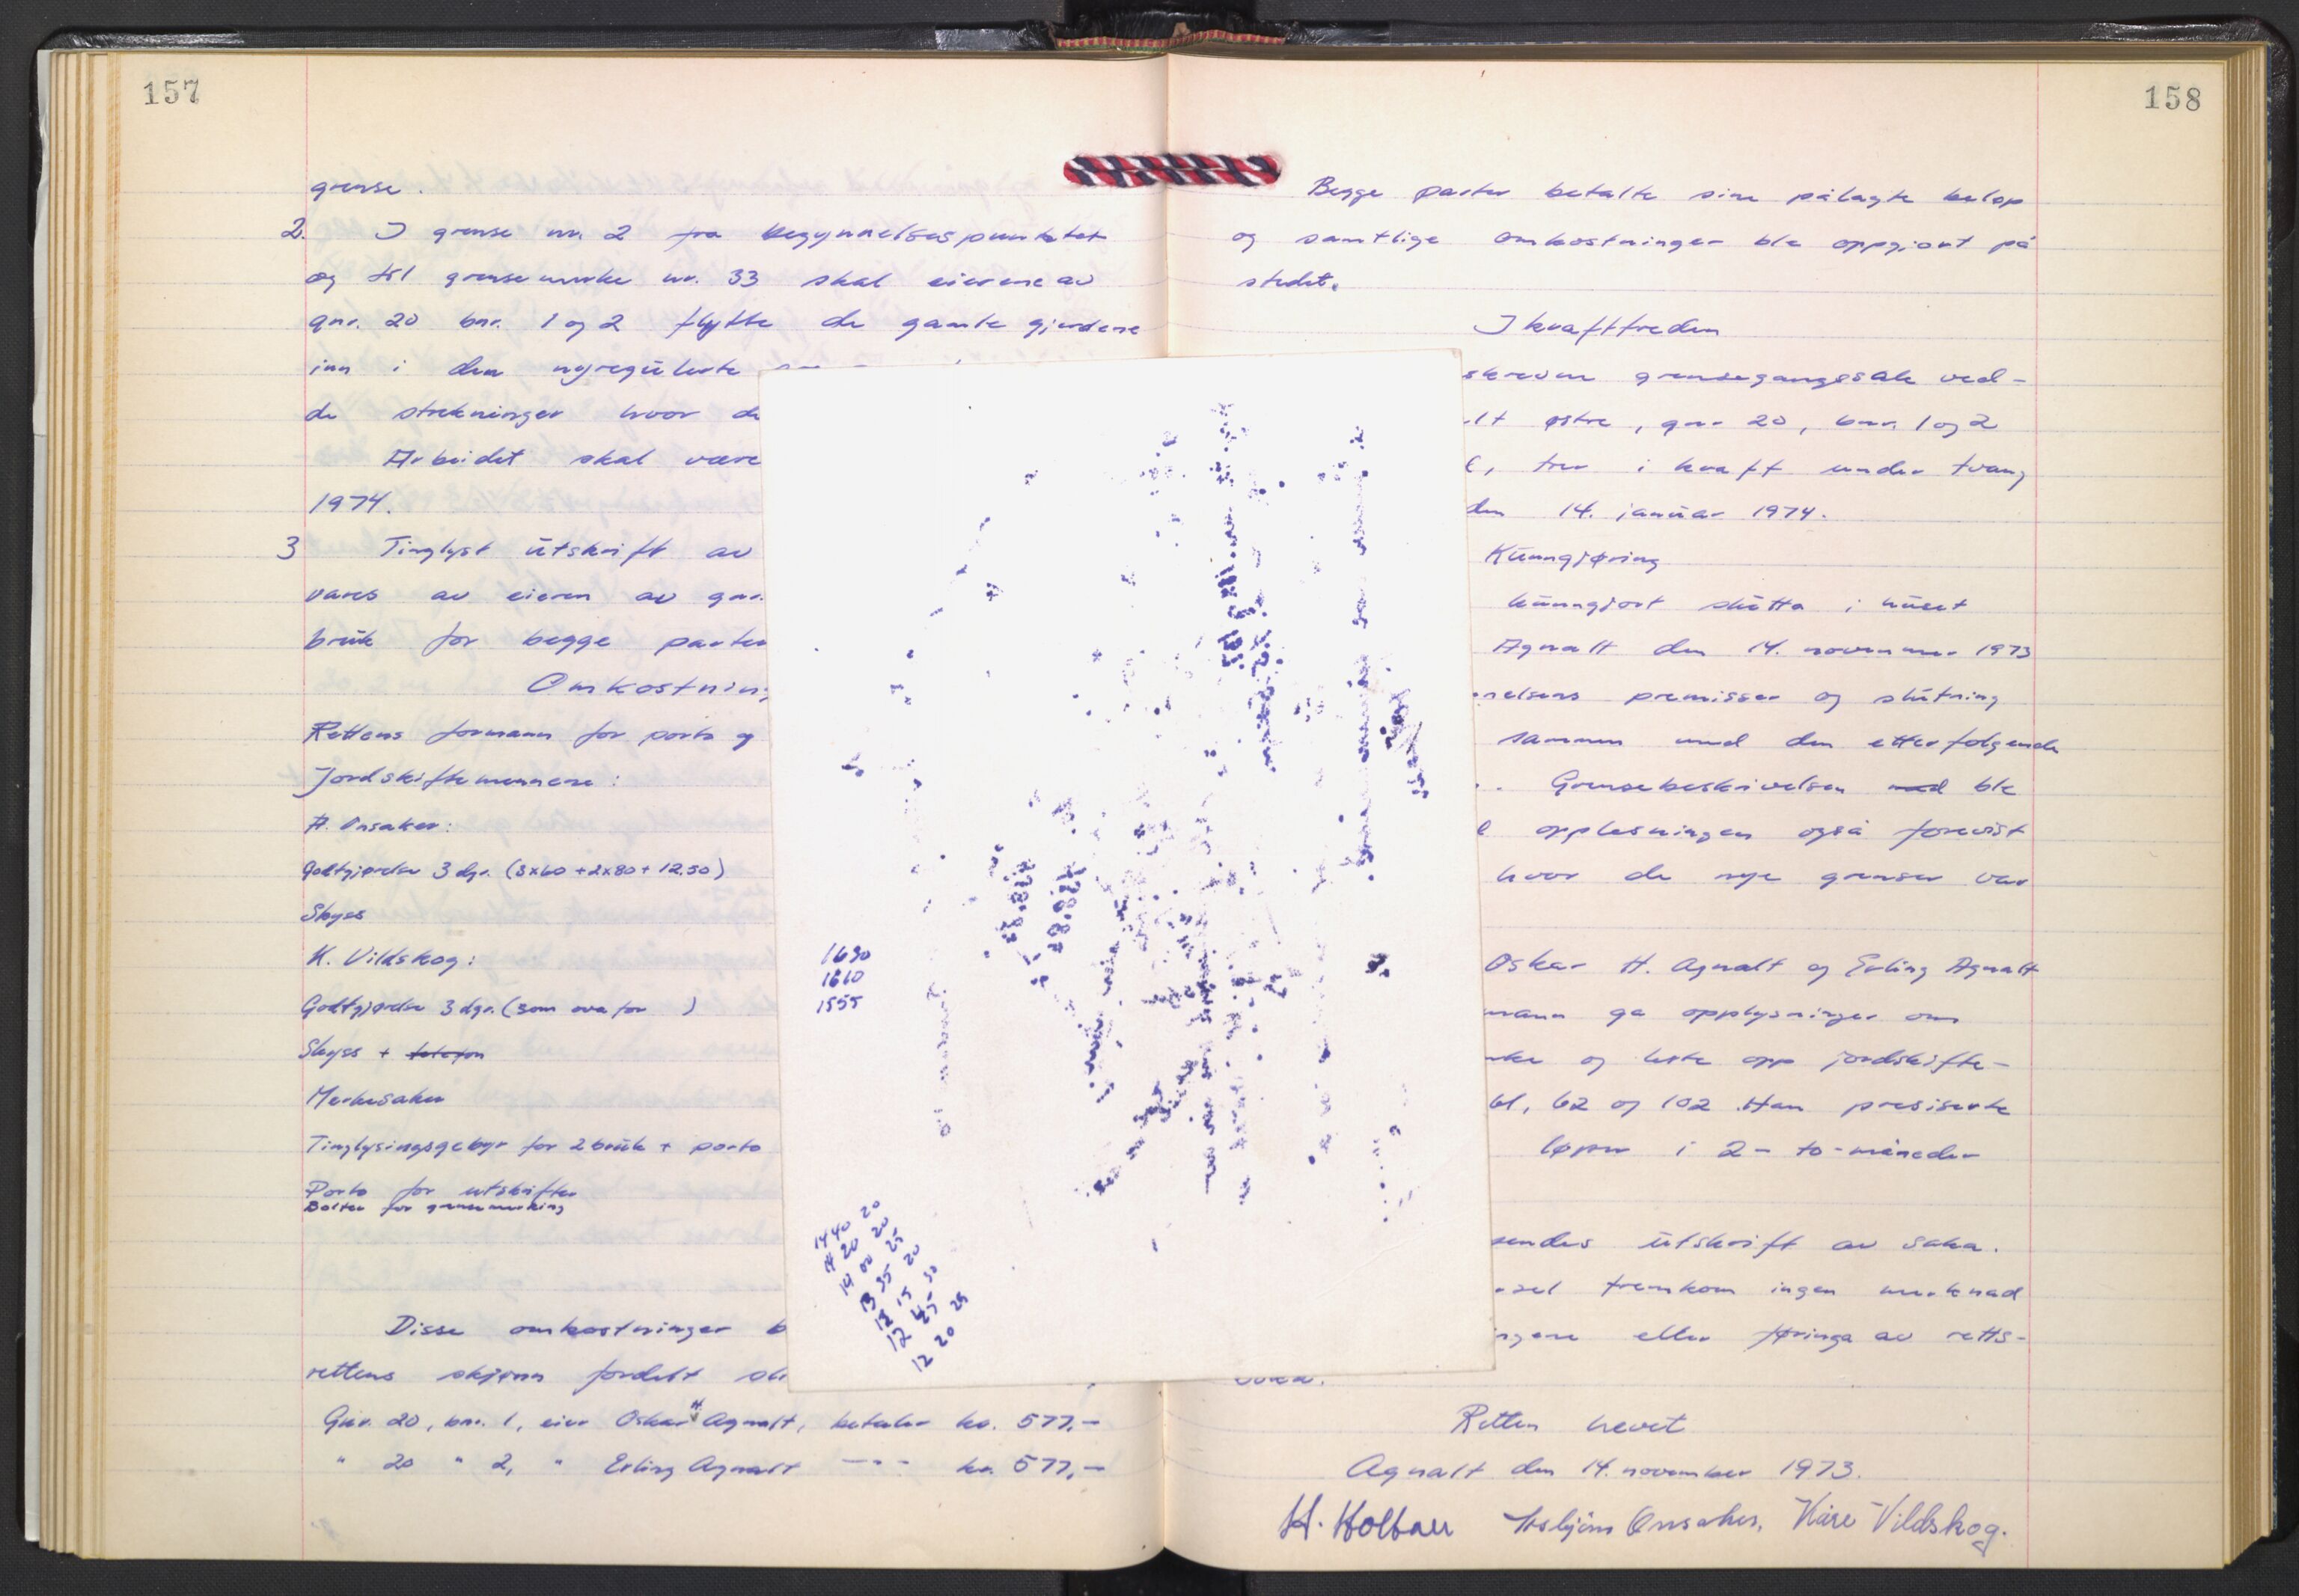 157
grense.
2. I grense nr. 2 fra begynnelsespunktet
og til grensemerke nr. 33 skal eierene av
gnr. 20 bnr. 1 og 2 flytte de gamle gjerdene
inn i den nyregulerte
de strekninger hvor de
Arbeidet skal være
1974.
3 Tinglyst utskrift av
vares av eieren av gnr.
bruk for begge parter
Omkostning
Rettens formann for porto og
Jordskiftemennene:
A. Onsaker:
Godtgjørelse 3 dgr. (3x60 + 2x80 + 12.50)
Skyss
K. Vildskog:
Godtgjørelse 3 dgr. (som ovafor )
Skyss + telefon
Merkesaker
Tinglysingsgebyr for 2 bruk + porto
Porto for utskrifter
Bolter for grensemerking
Disse omkostninger b
rettens skjønn fordelt
Gnr. 20, bnr. 1, eier Oskar H. Agnalt, betaler kr. 577,-
" 20 " 2, " Erling Agnalt --- kr. 577,-
1630
1610
1555
14 40 20
14 20 20
14 00 25
13 35 20
13 15 30
12 45 25
12 20 25
158
Begge parter betalte sine pålagte beløp
og samtlige omkostninger ble oppgjort på
stedet.
Ikrafttreden
skrevne grensegangssak ved-
lt østre, gnr 20, bnr. 1 og 2
trer i kraft under tvang
den 14. januar 1974.
Kunngjøring
kunngjort slutta i huset
Agnalt den 14. november 1973
relsens premisser og slutning
sammen med den etterfølgende
Grensebeskrivelsen med ble
opplesningen også forevist
hvor de nye grenser var
Oskar H. Agnalt og Erling Agnalt
mann ga opplysninger om
rke og leste opp jordskifte-
61, 62 og 102. Han presiserte
løper i 2 - to - måneder
sendes utskrift av saka.
sel fremkom ingen merknad
ingene eller føringa av retts-
boka.
Retten hevet
Agnalt den 14. november 1973.
H. Holbau Asbjørn Onsaker, Kåre Vildskog.